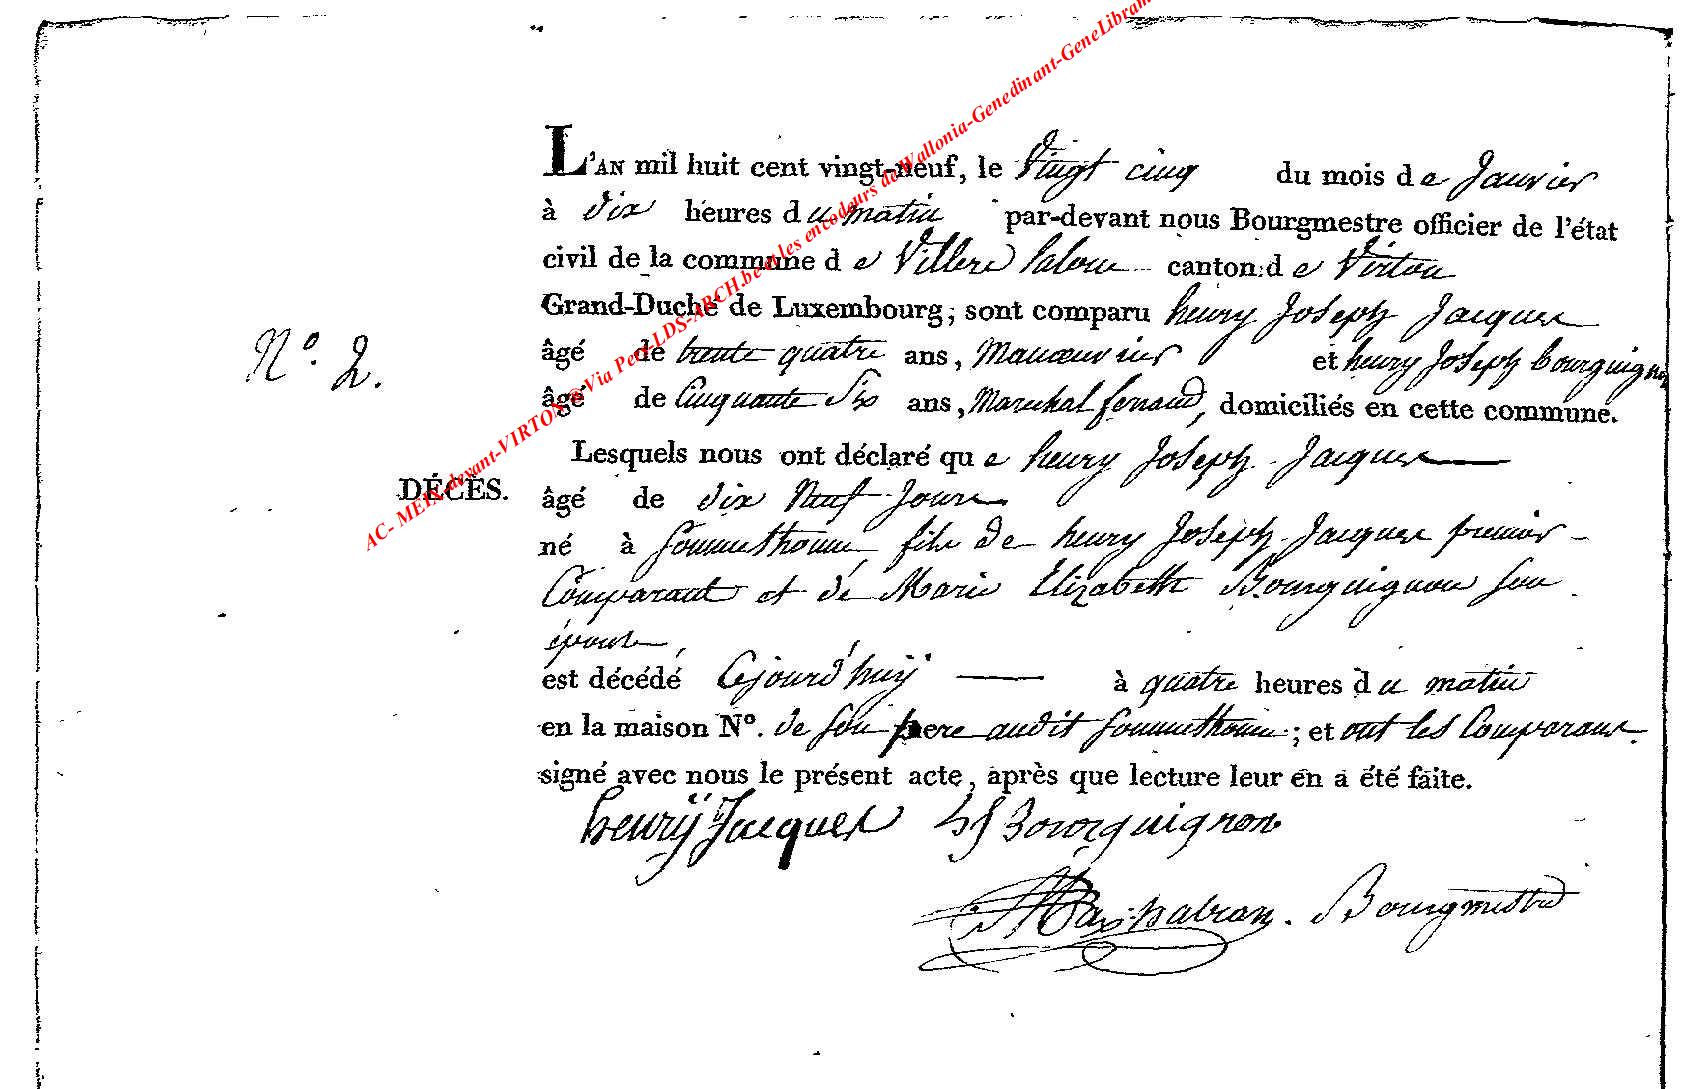 L'AN mil huit cent vingt-neuf, le Vingt cinq du mois de Janvier
à dix heures du matin par-devant nous Bourgmestre officier de l'état
civil de la commune de Villers laloue canton de Virton
Grand-Duché de Luxembourg; sont comparu henry Joseph Jacques
âgé de trente quatre ans, Manoeuvrier et henry Joseph bourguignon
N.º 2.
âgé de Cinquante Six ans, Marechal ferrand, domiciliés en cette commune.
Lesquels nous ont déclaré que henry Joseph Jacques
DÉCÈS.
âgé de dix Neuf Jours
né à Sommethonne fils de henry Joseph Jacques premier
Comparant et de Marie Elizabeth Bourguignon son
épouse,
est décédé Cejourd'huy à quatre heures du matin
en la maison Nº. de son pere audit Sommethonne; et ont les Comparans
signé avec nous le présent acte, après que lecture leur en a été faite.
henrÿ Jacques hJ Bourguignon
Bourgmestre
AC- MEIX-devant-VIRTON @ Via Perl-LDS-ARCH.be et les encodeurs de Wallonia-Genedinant-GeneLibram